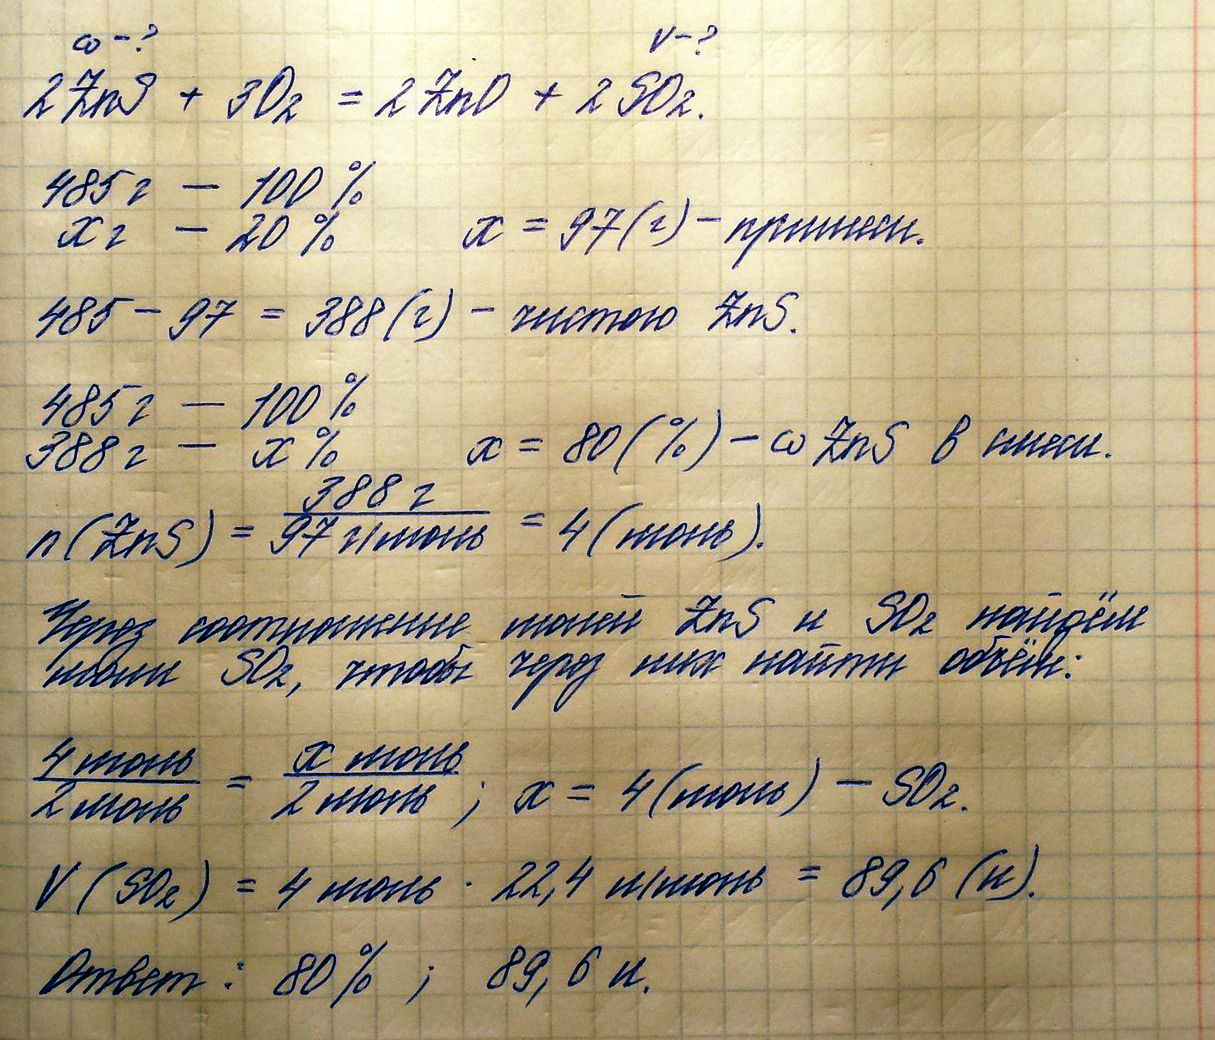 ω - ? V - ?
2 ZnS + 3O₂ = 2 ZnO + 2 SO₂.
485 г — 100 %
x г — 20 % x = 97 (г) - примеси.
485 - 97 = 388 (г) - чистого ZnS.
485 г — 100 %
388 г — x % x = 80 (%) - ω ZnS в смеси.
n (ZnS) = 388 г / 97 г/моль = 4 (моль).
Через соотношение молей ZnS и SO₂ найдём
моли SO₂, чтобы через них найти объём:
4 моль / 2 моль = x моль / 2 моль ; x = 4 (моль) — SO₂.
V (SO₂) = 4 моль · 22,4 л/моль = 89,6 (л).
Ответ : 80 % ; 89,6 л.